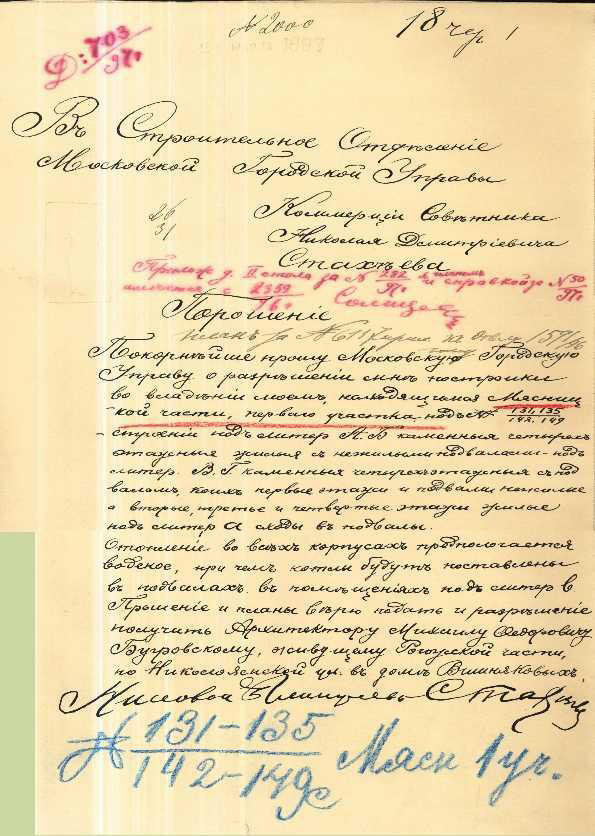 N 2000
18 чер 1
1897
Д: 703
97
Въ Строительное Отдѣленіе
Московской Городской Управы
26
31
Коммерціи Совѣтника
Николая Дмитріевича
Стахѣева
II стола за N 232 и справкой за N 50
2359
Прошеніе
планъ за N
Покорнѣйше прошу Московскую Городскую
Управу о разрѣшеніи мнѣ постройки
во владѣніи моемъ, находящемся Мясниц
кой части, перваго участка подъ N 131,135
142,149
строеній подъ литер А.Б каменныя четырех
этажныя жилыя съ нежилыми подвалами подъ
литер. В.Г каменныя четырехъэтажныя съ под
валомъ, коихъ первые этажи и подвалы нежилые
а вторые, третье и четвертые этажи жилые
подъ литер а сходы въ подвалы.
Отопленіе во всѣхъ корпусахъ предпологается
водяное, при чемъ котлы будутъ поставлены
въ подвалахъ въ помѣщеніяхъ подъ литер в
Прошеніе и планы вѣрю подать и разрѣшеніе
получить Архитектору Михаилу Федоровичу
Бугровскому, живущему Рогожской части,
по Николоямской ул. въ домѣ Вишняковыхъ
Николай Дмитріевъ Стахѣев
N 131-135
142-149
Мясн 1 уч.